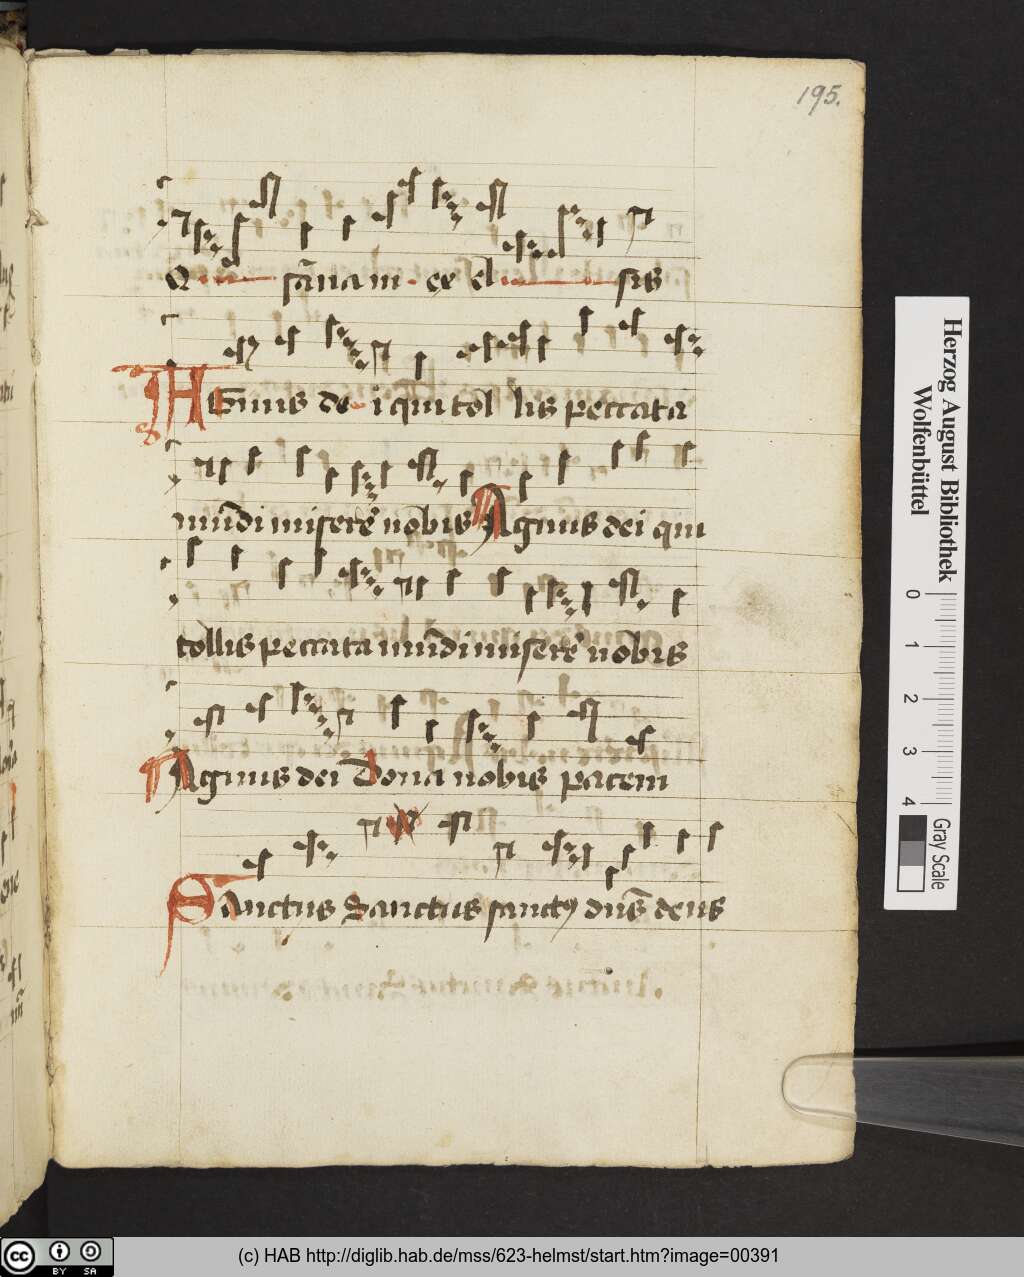 195.
O sāna in ex cel sis
AGnus de i qui tol lis peccata
mūdi miserē nobis Agnus dei qui
tollis peccata mūdi miserē nobis
Agnus dei Dona nobis pacem
Sanctus Sanctus sanctꝯ dn̄s deus
Herzog August Bibliothek
Wolfenbüttel
0 1 2 3 4
Gray Scale
cc BY SA
(c) HAB http://diglib.hab.de/mss/623-helmst/start.htm?image=00391